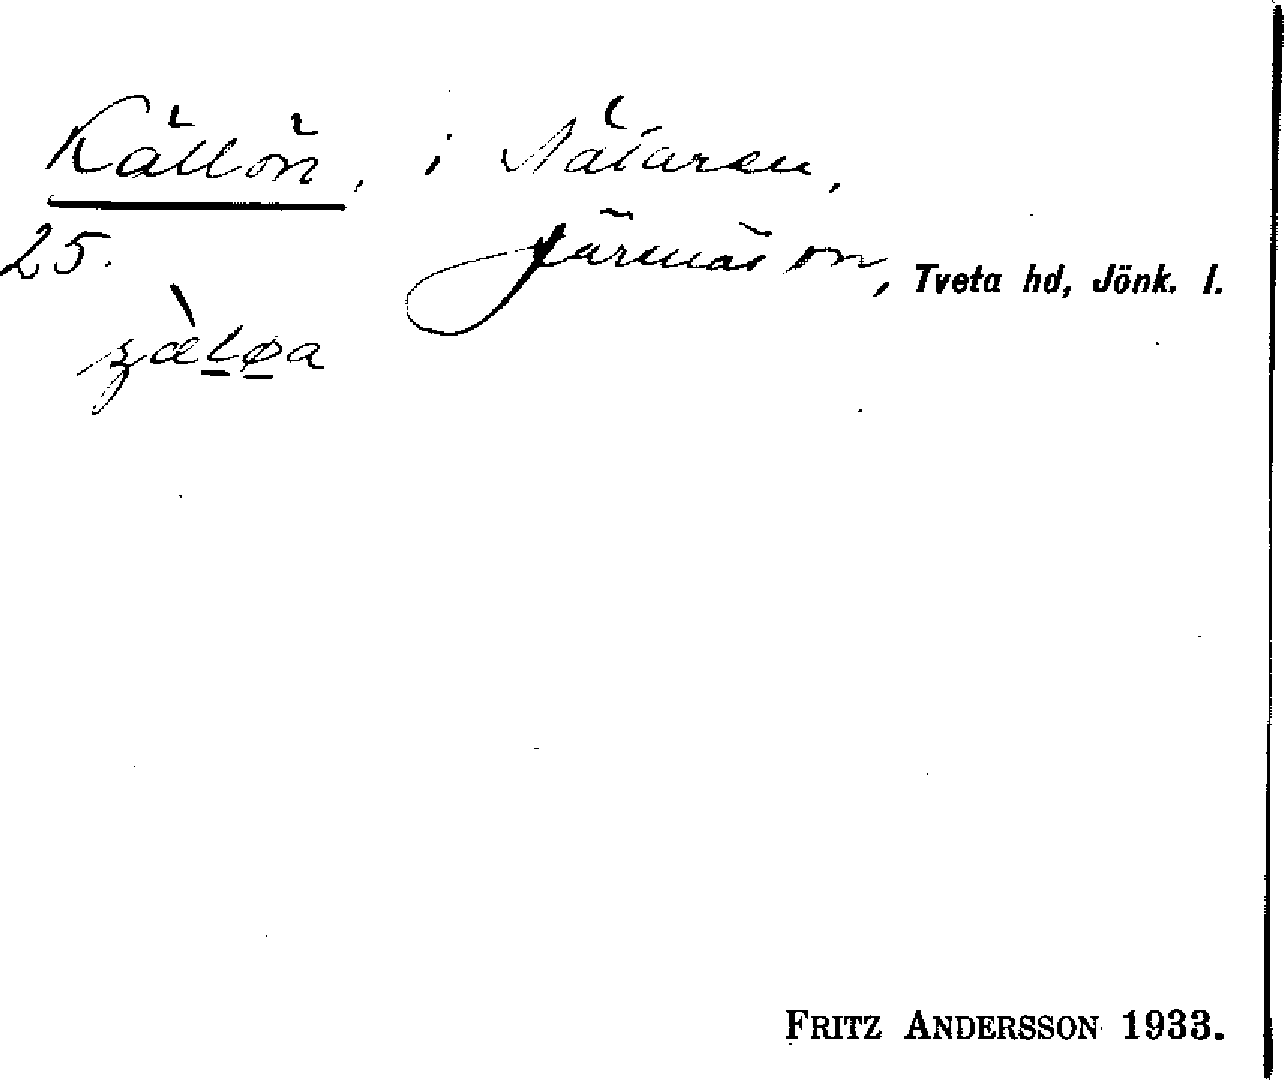 Källön, i Nätaren,
25. Järsnäs sn, Tveta hd, Jönk. l.
FRITZ ANDERSSON 1933.